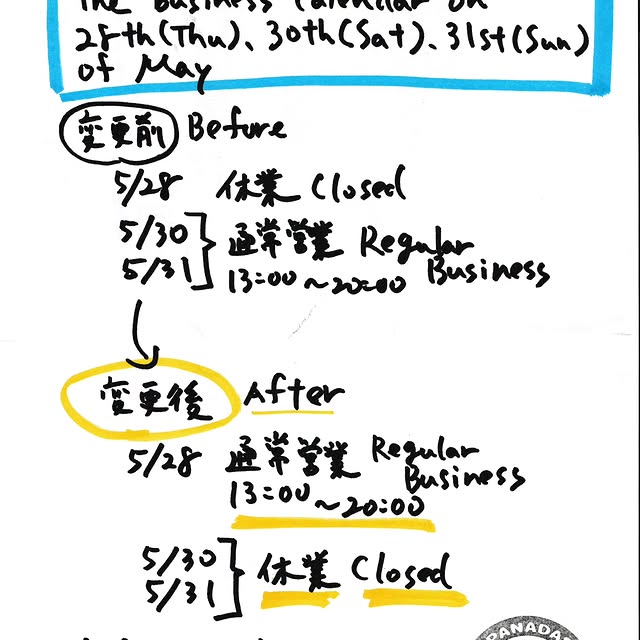 The Business Calendar on
28th(Thu)、30th(Sat)、31st(Sun)
of May
変更前 Before
5/28 休業 Closed
5/30
5/31
通常営業 Regular Business
13:00～20:00
変更後 After
5/28 通常営業 Regular Business
13:00～20:00
5/30
5/31
休業 Closed
PANADA